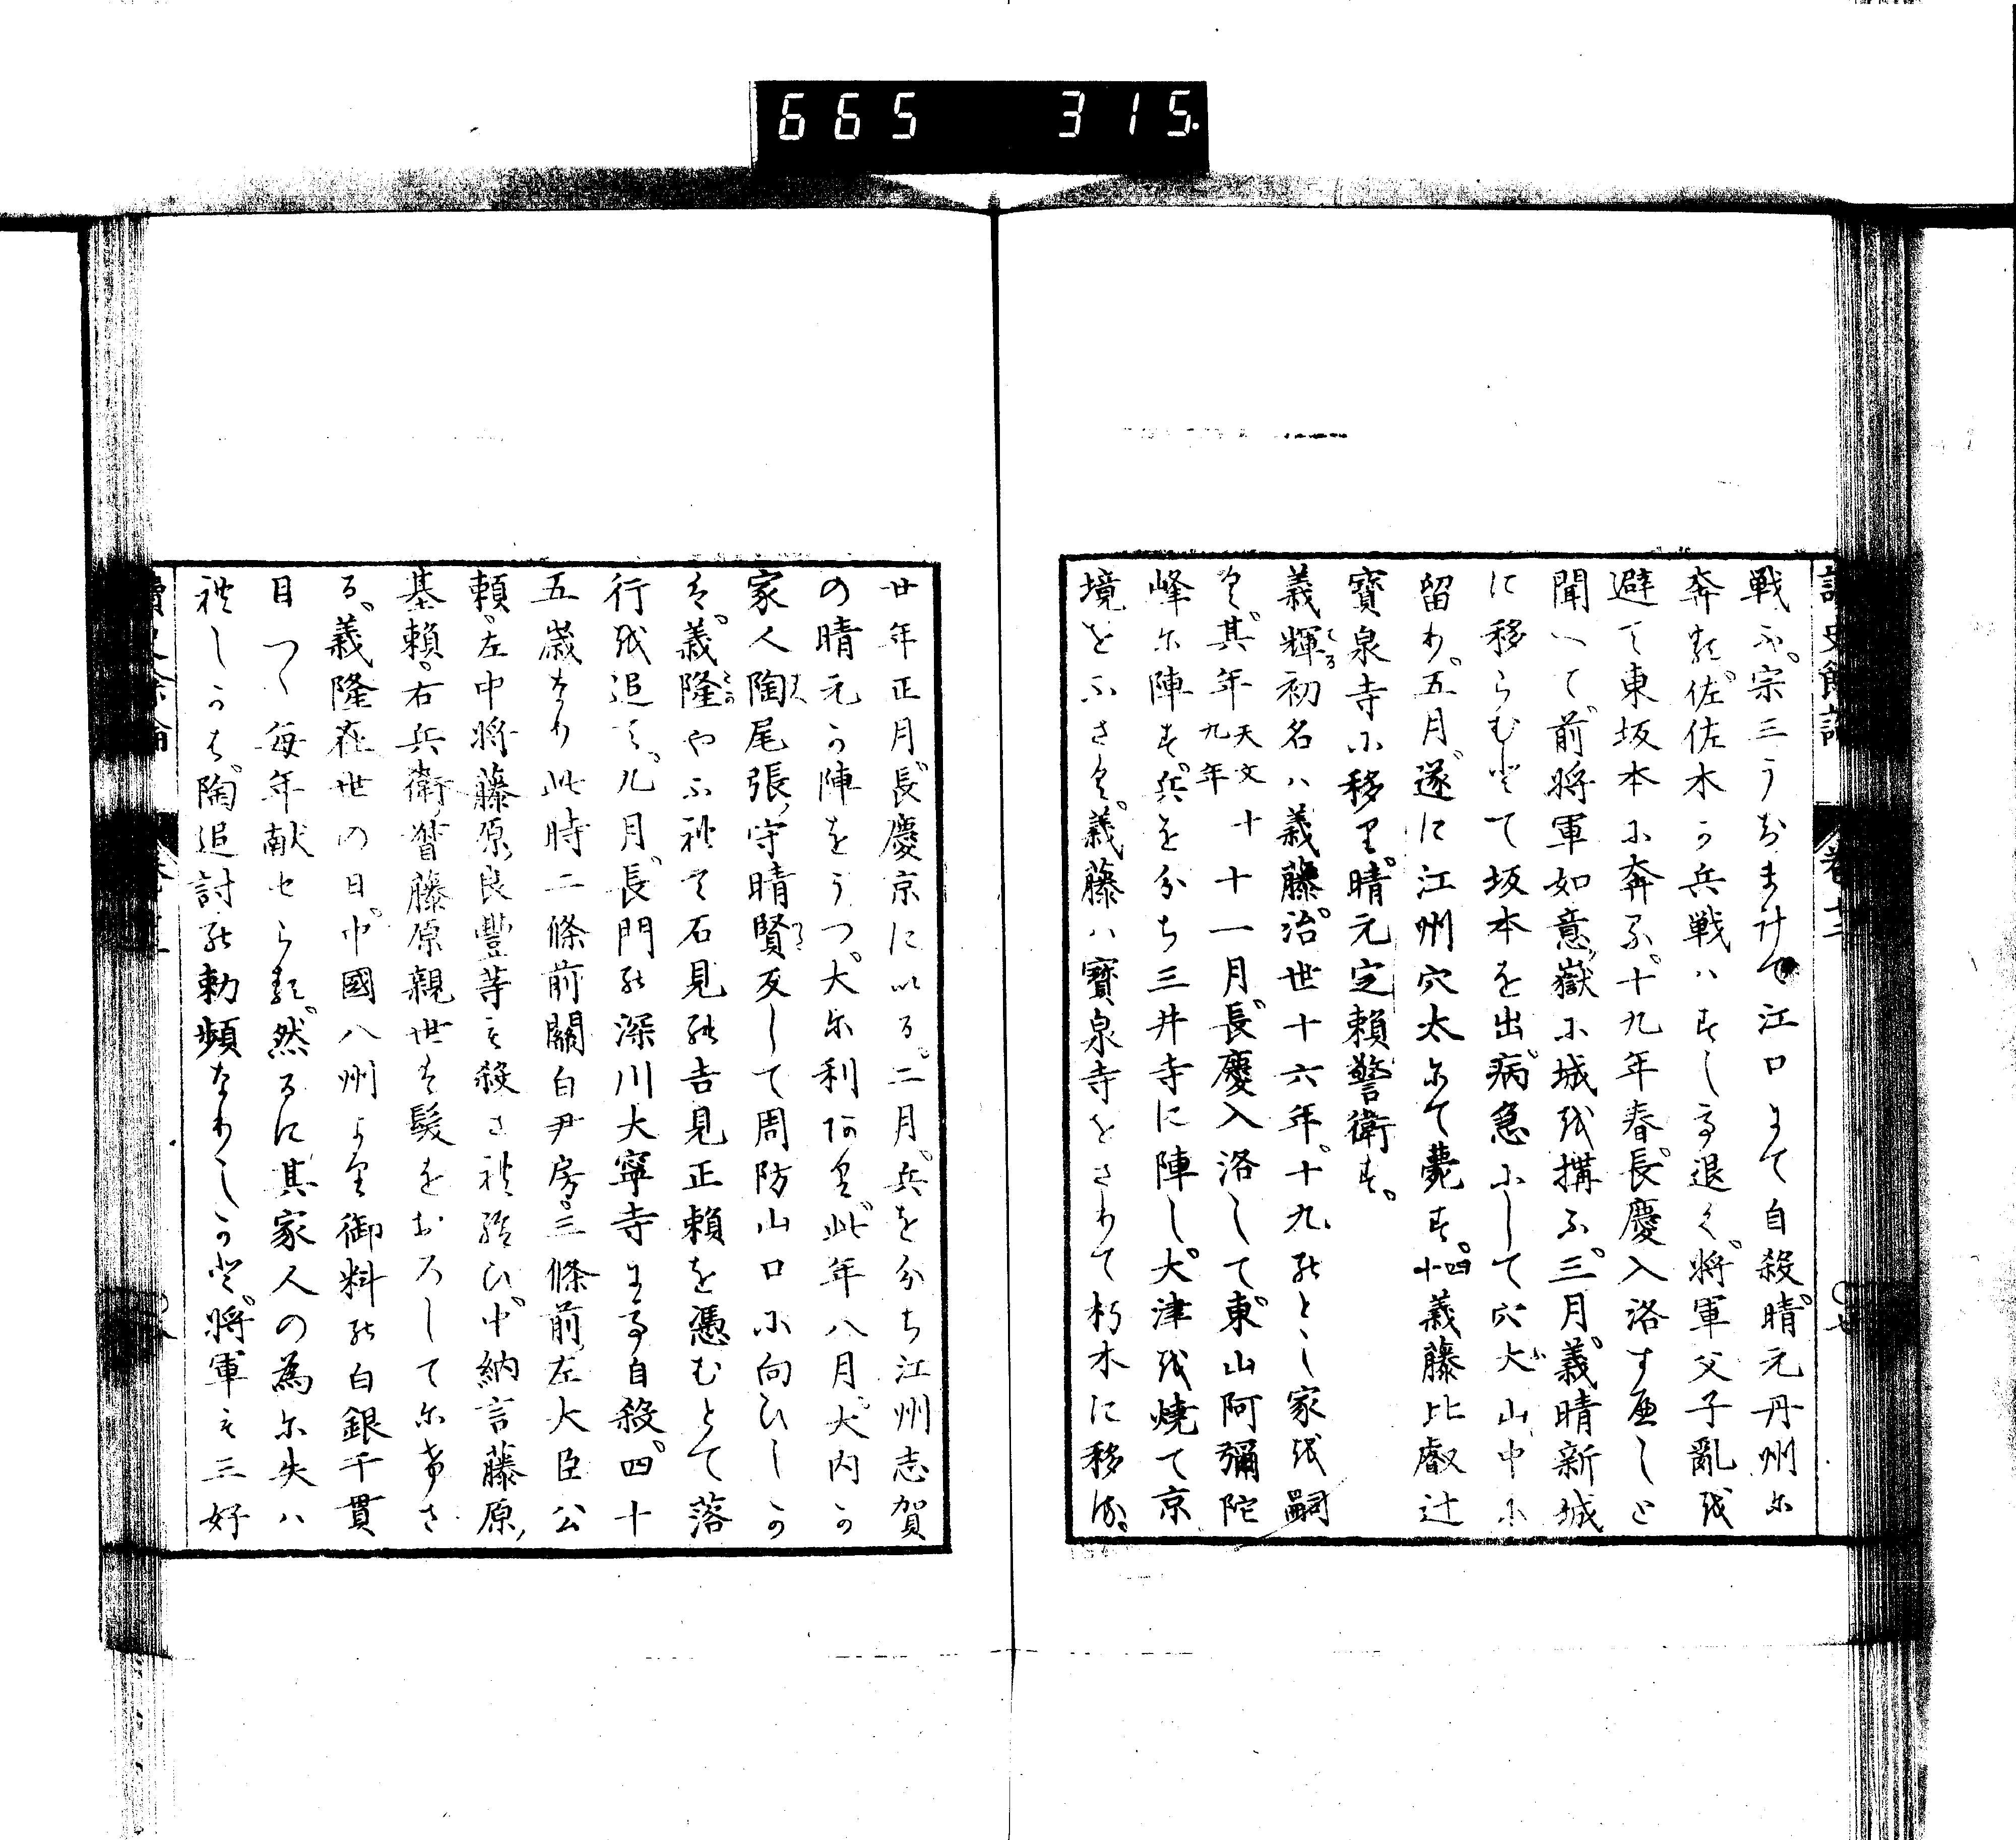 665 315.
讀史餘論 卷十二
戦ふ。宗三うちまけて江口にて自殺。晴元丹州に
奔る。佐佐木か兵戦ハすして退く。将軍父子亂を
避て東坂本に奔る。十九年春。長慶入洛すへしと
聞へて。前将軍如意嶽に城を搆ふ。三月。義晴新城
に移らむとて坂本を出。病急にして穴大山中に
留り。五月。遂に江州穴太にて薨す。四十義藤比叡辻
寳泉寺に移り。晴元定頼警衛す。
義輝初名ハ義藤。治世十六年。十九のとし家を嗣
く。其年天文十九年十一月。長慶入洛して。東山阿彌陀
峰に陣す。兵を分ち三井寺に陣し。大津を焼て京
境をふさく。義藤ハ寳泉寺をさりて朽木に移る。
廿年正月。長慶京に入る。二月。兵を分ち江州志賀
の晴元か陣をうつ。大に利あり。此年八月。大内か
家人陶尾張守晴賢反して周防山口に向ひしか
は。義隆やふれて石見の吉見正頼を憑むとて落
行を追て。九月。長門の深川大寧寺にて自殺。四十
五歳なり此時二條前關白尹房。三條前左大臣公
頼。左中将藤原良豐等も殺され給ひ。中納言藤原
基頼。右兵衛督藤原親世は髪をおろしてにけさ
る。義隆在世の日。中國八州より御料の白銀千貫
目つゝ毎年献せらる。然るに其家人の為に失ハ
れしかは。陶追討の勅頻なりしかと。将軍も三好